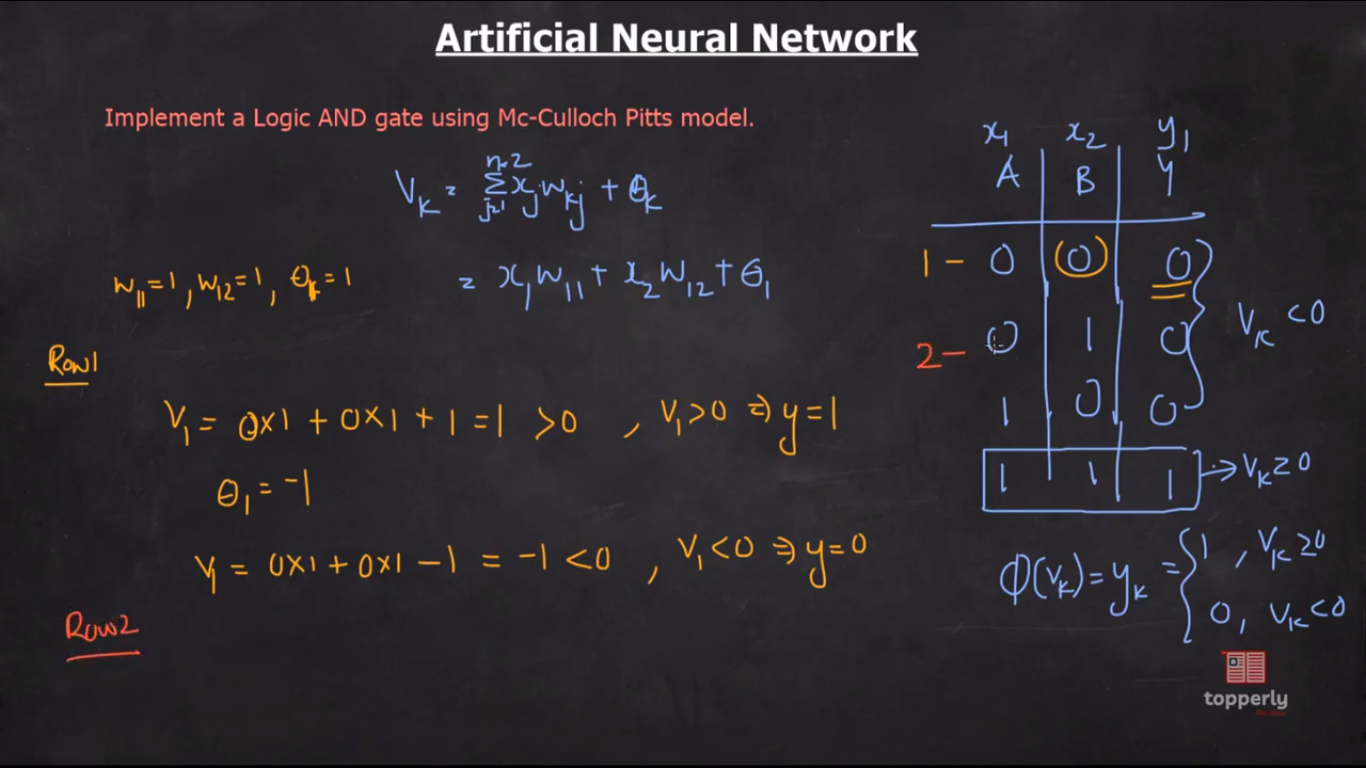 Artificial Neural Network
Implement a Logic AND gate using Mc-Culloch Pitts model.
V_K = Σ_{j=1}^{n=2} x_j w_kj + θ_K
= x_1 w_11 + x_2 w_12 + θ_1
w_11 = 1, w_12 = 1, θ_k = 1
Row1
V_1 = 0×1 + 0×1 + 1 = 1 > 0 , V_1 > 0 ⇒ y = 1
θ_1 = -1
V_1 = 0×1 + 0×1 - 1 = -1 < 0 , V_1 < 0 ⇒ y = 0
Row2
x_1 x_2 y_1
A B Y
1 - 0 0 0
2 - 0 1 0
1 0 0
V_K < 0
1 1 1 → V_K ≥ 0
Φ(V_K) = y_K = { 1 , V_K ≥ 0
0, V_K < 0
topperly